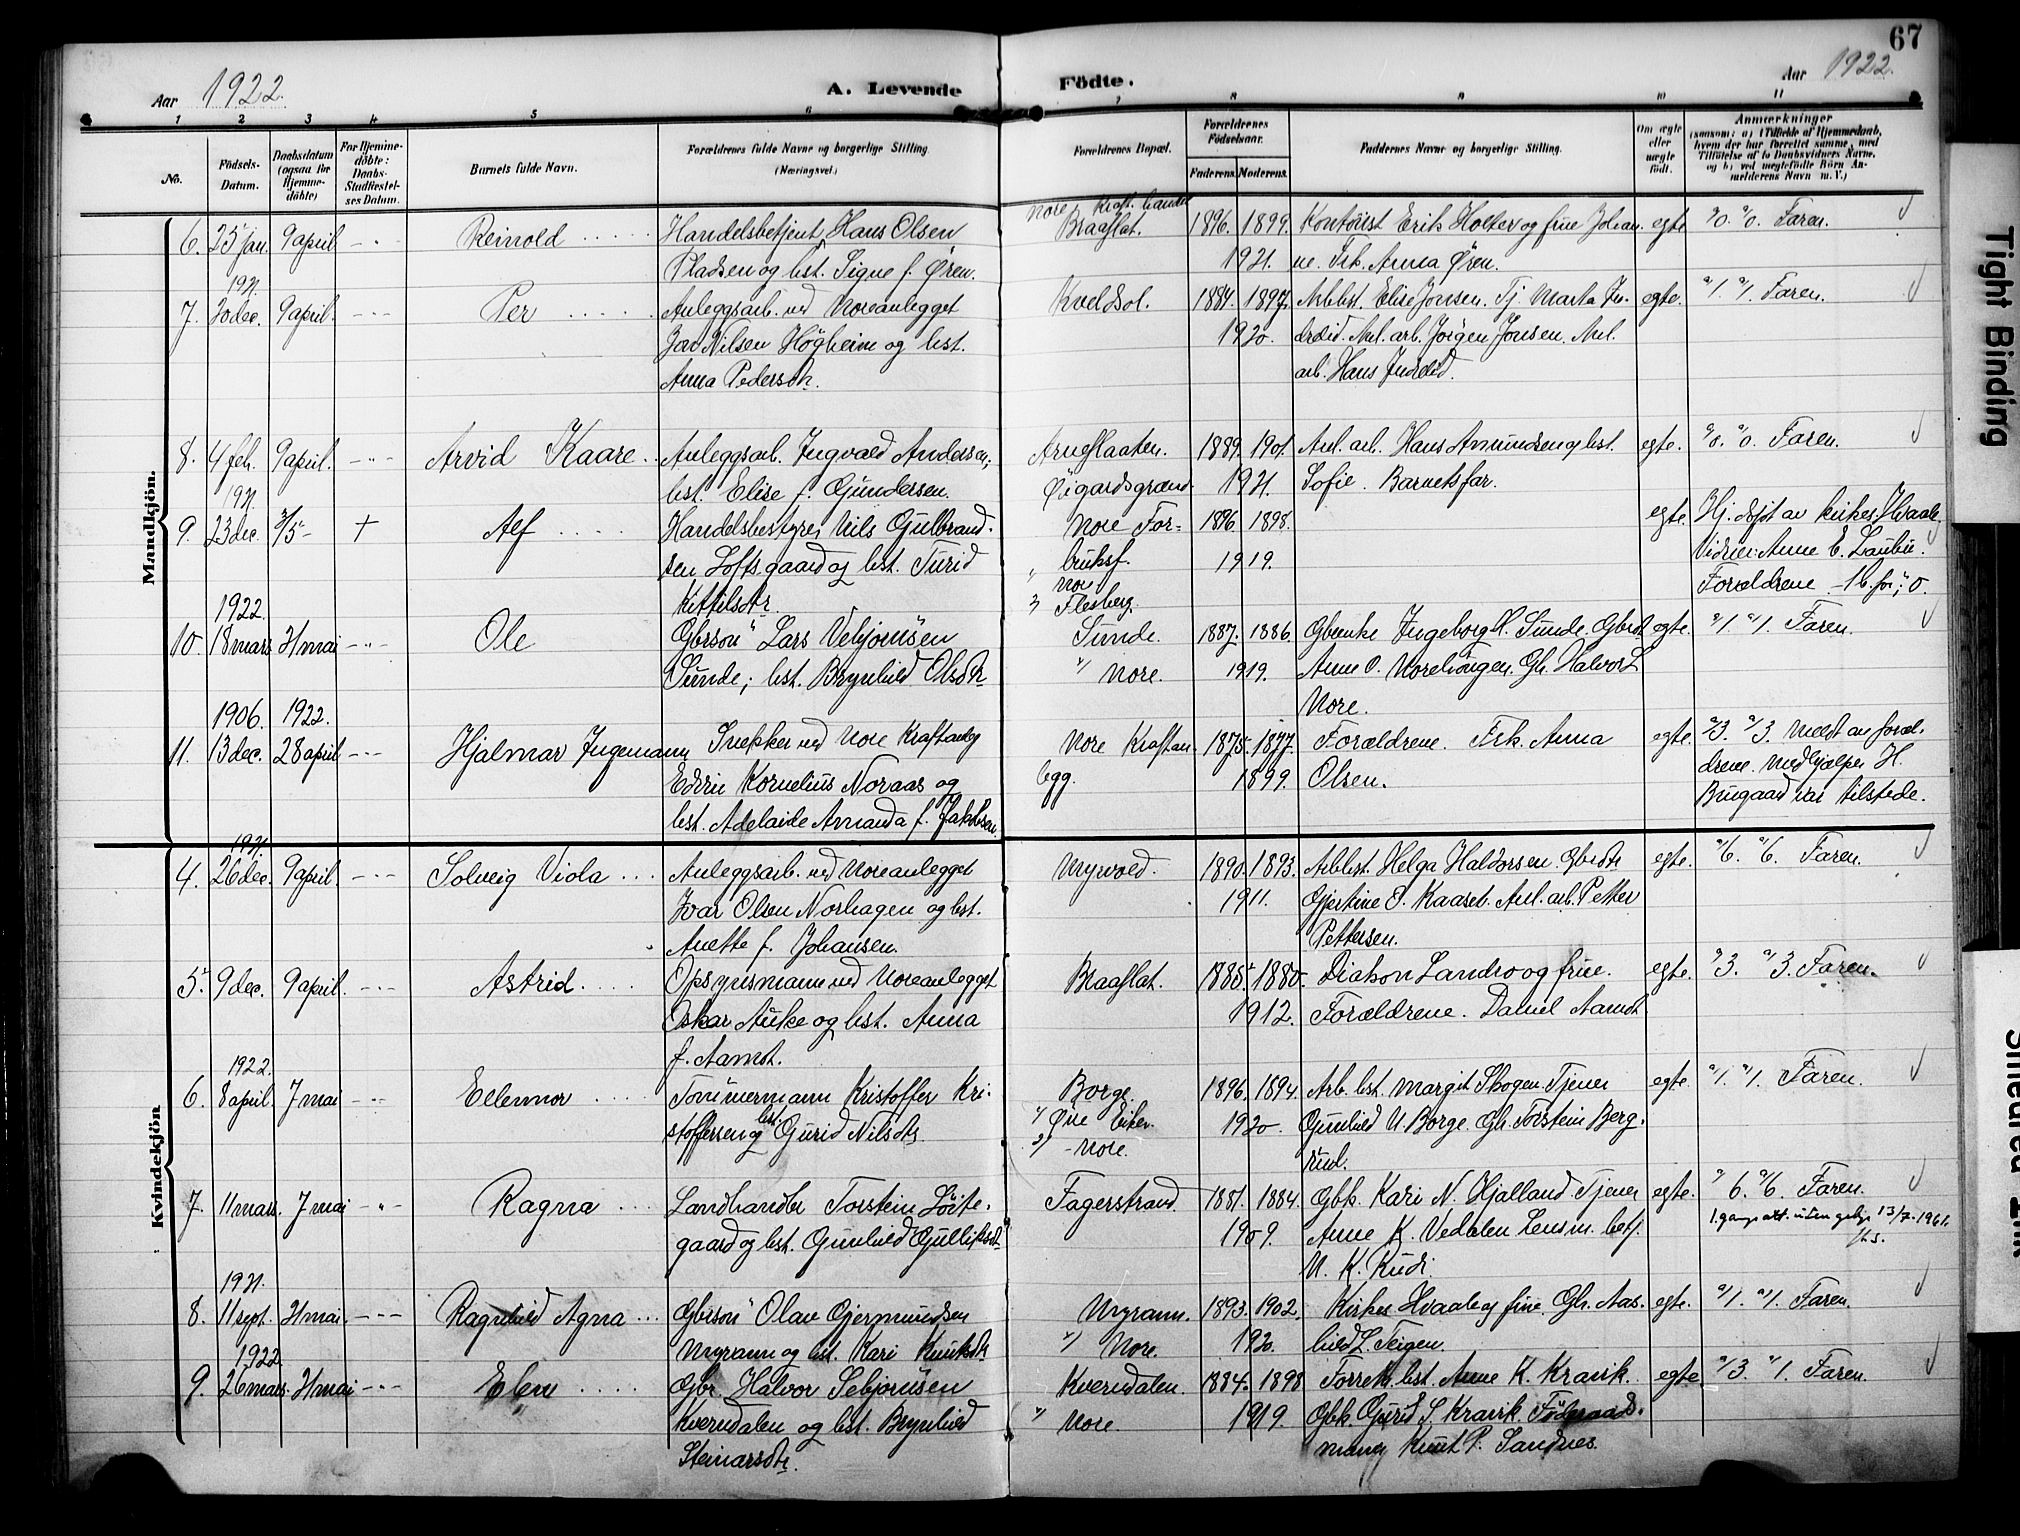 67
Aar 1922. A. Levende Födte. Aar 1922.
1 2 3 4 5 6 7 8 9 10 11
No.
Födsels-
Datum.
Daabsdatum
(ogsaa for
Hjemme-
döbte)
For Hjemme-
döbte:
Daabs-
Stadfæstel-
ses Datum.
Barnets fulde Navn.
Forældrenes fulde Navne og borgerlige Stilling.
(Næringsvei.)
Forældrenes Bopæl.
Forældrenes
Födselsaar.
Faderens. Moderens.
Faddernes Navne og borgerlige Stilling.
Om ægte
eller
uægte
født.
Anmærkninger
(saasom: a) i Tilfælde af Hjemmedaab,
hvem der har forrettet samme, med
Tilföielse af to Daabsvidners Navne,
og b) ved uægtefödte Börn An-
melderens Navn m. V.)
Mandkjön.
6. 25 jan. 9 april -"- Reinold
Handelsbetjent Hans Olsen
Pladsen og hst. Signe f. Øren.
Nore Kraft. handel
Braaflat. 1896. 1899.
1921.
Kontorist Erik Holter og frue Johan-
ne. Frk. Anna Øren.
egte. Faren.
1921.
7. 20 dec. 9 april. -"- Per
Anleggsarb. ved Noreanlegget
Jon Nilsen Høgheim og hst.
Anna Pedersdtr.
Kveldsol. 1884. 1897.
1920.
Arb.hst. Elise Jonsen. Tj. Marta In-
dreeid. Anl. arb. Jørgen Jonsen. Anl.
arb. Hans Indreid.
egte. Faren.
8. 4 feb. 9 april. -"- Arvid Kaare
Anleggsarb. Ingvald Andersen;
hst. Elise f. Gundersen.
Arneflaaten. 1889. 1901.
Øigardsgrend. 1921.
Anl. arb. Hans Amundsen og hst.
Sofie. Barnets far.
egte. Faren.
1921.
9. 23 dec. 3/5- + Alf
Handelsbestyrer Nils Gulbrand-
sen Loftsgaard og hst. Turid
Kittilsdtr.
Nore For-
bruksf.
" Nore
" Flesberg.
1896 1898.
1919.
egte. Hj. døpt av kirkes. Hvaale.
Vidner: Anne E. Laubu.
Forældrene
1922.
10. 18 mars 21 mai -"- Ole
Gbrsøn Lars Vebjørnsen
Sunde; hst. Brynhild Olsdtr.
Sunde. 1887. 1886.
" Nore. 1919.
Gbrenke Ingeborg L. Sunde. Gbrdt.
Anne O. Norehongen. Gbr. Halvor L.
Nore.
egte. Faren.
1906. 1922.
11. 13 dec. 28 april -"- Hjalmar Ingemann
Snekker ved Nore Kraftanleg
Edvin Kornelius Noraas og
hst. Adelaide Amanda f. Jakobsen.
Nore Kraftan-
legg.
1875. 1877.
1899.
Forældrene. Frk. Anna
Olsen.
egte. Meldt av foræl-
drene. Medhjælper H.
Brugaard var tilstede.
Kvindekjön
1921.
4. 26 dec. 9 april. -"- Solveig Viola
Anleggsarb. ved Noreanlegget
Ivar Olsen Norhagen og hst.
Anette f. Johansen.
Myrvold. 1890. 1893.
1911.
Arb.hst. Helga Haldorsen. Gbrdtr.
Gjertine O. Kaaset. Anl. arb. Petter
Pettersen.
egte. Faren.
5. 9 dec. 9 april. -"- Astrid
Opsynsmann ved Noreanlegget
Oskar Auke og hst. Anna
f. Aamot.
Braaflat. 1885. 1880.
1912.
Diakon Landro og frue.
Forældrene. Daniel Aamot
egte. Faren.
1922.
6. 8 april. 7 mai -"- Ellennor
Tømmermann Kristoffer Kri-
stoffersen og hst. Gurid Nilsdtr.
Borge.
" Øvre Eiker.
" Nore.
1896. 1894.
1920.
Arb. hst. Margit Skogen. Tjener
Gunhild N. Borge. Gbr. Torstein Berg-
rud.
egte. Faren.
7. 11 mars. 7 mai -"- Ragna
Landhandler Torstein Løite-
gaard og hst. Gunhild Gulliksdtr.
Fagerstrand. 1881. 1884.
1909.
Gbk. Kari N. Hjalland. Tjener
Anne K. Vedalen. Lensm. betj.
N. K. Rudi.
egte. Faren.
1. gangs att. uten gebyr 13/7-1961.
1921.
8. 11 sept. 21 mai. -"- Ragnhild Agna
Gbrsøn Olav Gjermundsen
Myrann og hst. Kari Knutsdtr.
Myrann. 1893. 1902.
" Nore. 1920.
Kirkes. Hvaale og frue. Gbr. Aas-
hild L. Teigen.
egte. Faren.
1922.
9. 26 mars. 21 mai -"- Elen
Gbr. Halvor Sebjørnsen
Kverndalen og hst. Brynhild
Steinarsdtr.
Kverndalen. 1884. 1898
" Nore. 1919.
Forretn. hst. Anne K. Kravik.
Gbk. Gurid S. Kravik. Føderaads-
mann Knut P. Sandnes.
egte. Faren.
Tight Binding